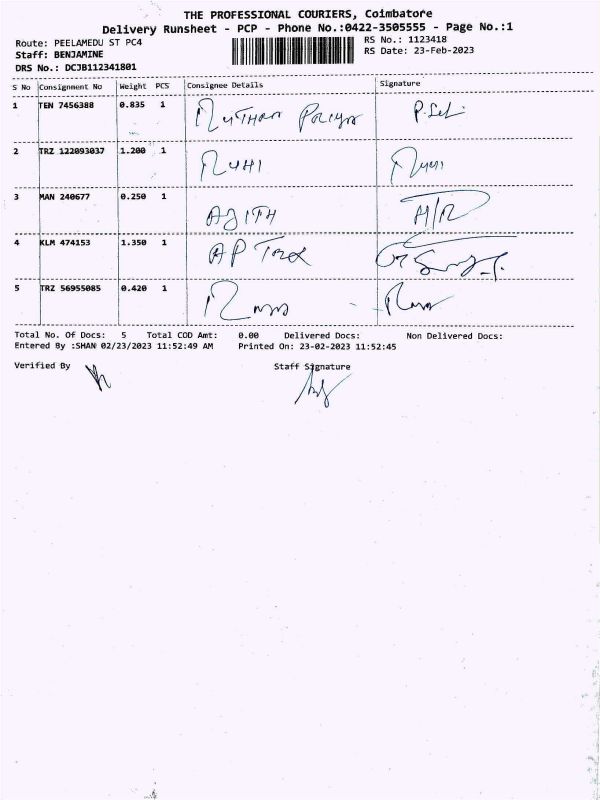 THE PROFESSIONAL COURIERS, Coimbatore
Delivery Runsheet - PCP - Phone No.:0422-3505555 - Page No.:1
Route: PEELAMEDU ST PC4
RS No.: 1123418
Staff: BENJAMINE
RS Date: 23-Feb-2023
DRS No.: DCJB112341801
S No Consignment No Weight PCS Consignee Details Signature
1 TEN 7456388 0.835 1
2 TRZ 122093037 1.200 1 RUHI
3 MAN 240677 0.250 1 AJITH
4 KLM 474153 1.350 1 AP Trex
5 TRZ 56955085 0.420 1
Total No. Of Docs: 5 Total COD Amt: 0.00 Delivered Docs: Non Delivered Docs:
Entered By :SHAN 02/23/2023 11:52:49 AM Printed On: 23-02-2023 11:52:45
Verified By Staff Signature